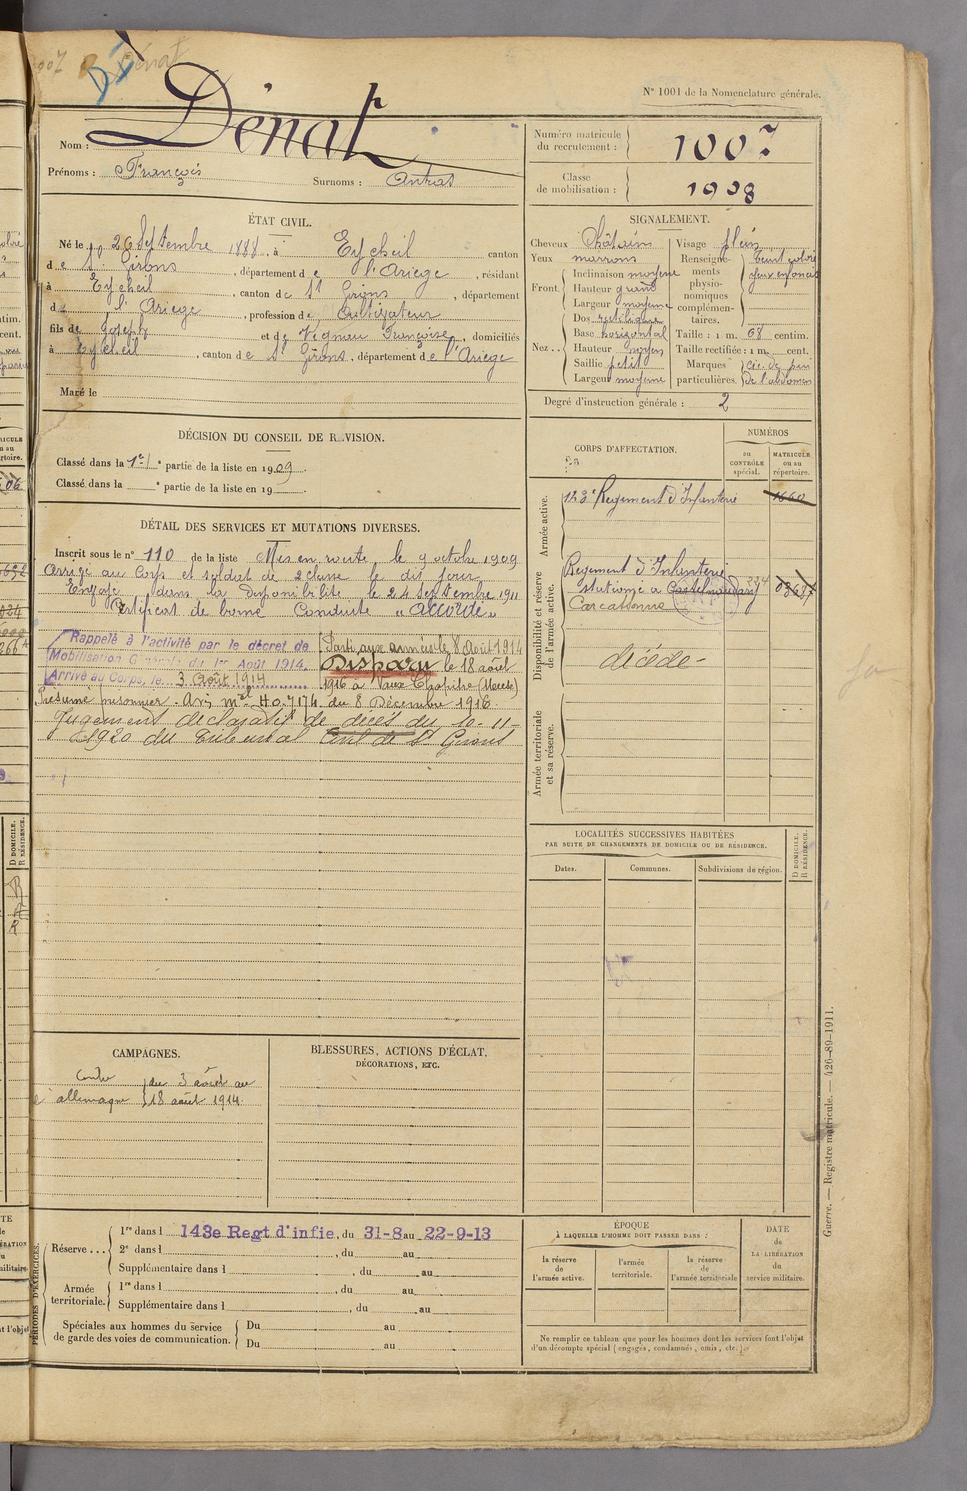 Dénat
N° 1001 de la Nomenclature générale.
Nom : Dénat
Prénoms : François Surnoms : Antras
Numéro matricule du recrutement : 1007
Classe de mobilisation : 1908
ÉTAT CIVIL.
Né le 26 Septembre 1888, à Eycheil canton
de St Girons, département de l'Ariège, résidant
à Eycheil, canton de St Girons, département
de l'Ariège, profession de Cultivateur
fils de Joseph et de Vignau Françoise, domiciliés
à Eycheil, canton de St Girons, département de l'Ariège
Marié le
SIGNALEMENT.
Cheveux Châtains Visage plein
Yeux marrons
Front. Inclinaison moyenne
Hauteur grand
Largeur moyenne
Nez. Dos rectiligne
Base horizontal
Hauteur moyen
Saillie petit
Largeur moyenne
Renseignements physionomiques complémentaires. Teint coloré yeux enfoncés
Taille : 1 m. 68 centim.
Taille rectifiée : 1 m. cent.
Marques particulières. cic. de l'abdomen
Degré d'instruction générale : 2
DÉCISION DU CONSEIL DE RÉVISION.
Classé dans la 1re partie de la liste en 1909.
Classé dans la e partie de la liste en 19
DÉTAIL DES SERVICES ET MUTATIONS DIVERSES.
Inscrit sous le n° 110 de la liste Mis en route le 9 octobre 1909
Arrivé au Corps et soldat de 2 classe le dit jour.
dans la disponibilité le 24 septembre 1911
Certificat de bonne Conduite "accordé"
Rappelé à l'activité par le décret de
Mobilisation Générale du 1er Août 1914.
Arrivé au Corps, le 3 Août 1914
Parti aux armées le 8 Août 1914
Disparu le 18 août
1916 à Vaux Chapitre (Meuse)
Présumé prisonnier. Avis mel H.O. 7174 du 8 Décembre 1916.
Jugement déclaratif de décès du 10-11-
1920 du Tribunal Civil de St Girons
CORPS D'AFFECTATION.
NUMÉROS
au CONTRÔLE spécial.
MATRICULE ou au répertoire.
Armée active.
143e Régiment d'Infanterie 1660
Disponibilité et réserve de l'armée active.
Régiment d'Infanterie
stationné à Castelnaudary
Carcassonne
décédé
Armée territoriale et sa réserve.
LOCALITÉS SUCCESSIVES HABITÉES
PAR SUITE DE CHANGEMENTS DE DOMICILE OU DE RÉSIDENCE.
Dates. Communes. Subdivisions de région. D DOMICILE. R RÉSIDENCE.
CAMPAGNES.
Contre l'allemagne du 3 août au
18 août 1914.
BLESSURES, ACTIONS D'ÉCLAT,
DÉCORATIONS, ETC.
PÉRIODES D'EXERCICES.
Réserve... 1re dans l 143e Regt d'infie, du 31-8 au 22-9-13
2e dans l , du au
Supplémentaire dans l , du au
Armée territoriale. 1re dans l , du au
Supplémentaire dans l , du au
Spéciales aux hommes du service de garde des voies de communication. Du au
Du au
ÉPOQUE
À LAQUELLE L'HOMME DOIT PASSER DANS :
la réserve de l'armée active.
l'armée territoriale.
la réserve de l'armée territoriale
DATE de LA LIBÉRATION du service militaire.
Ne remplir ce tableau que pour les hommes dont les services font l'objet
d'un décompte spécial (engagés, condamnés, omis, etc.).
Guerre. — Registre matricule. — 426-89-1911.